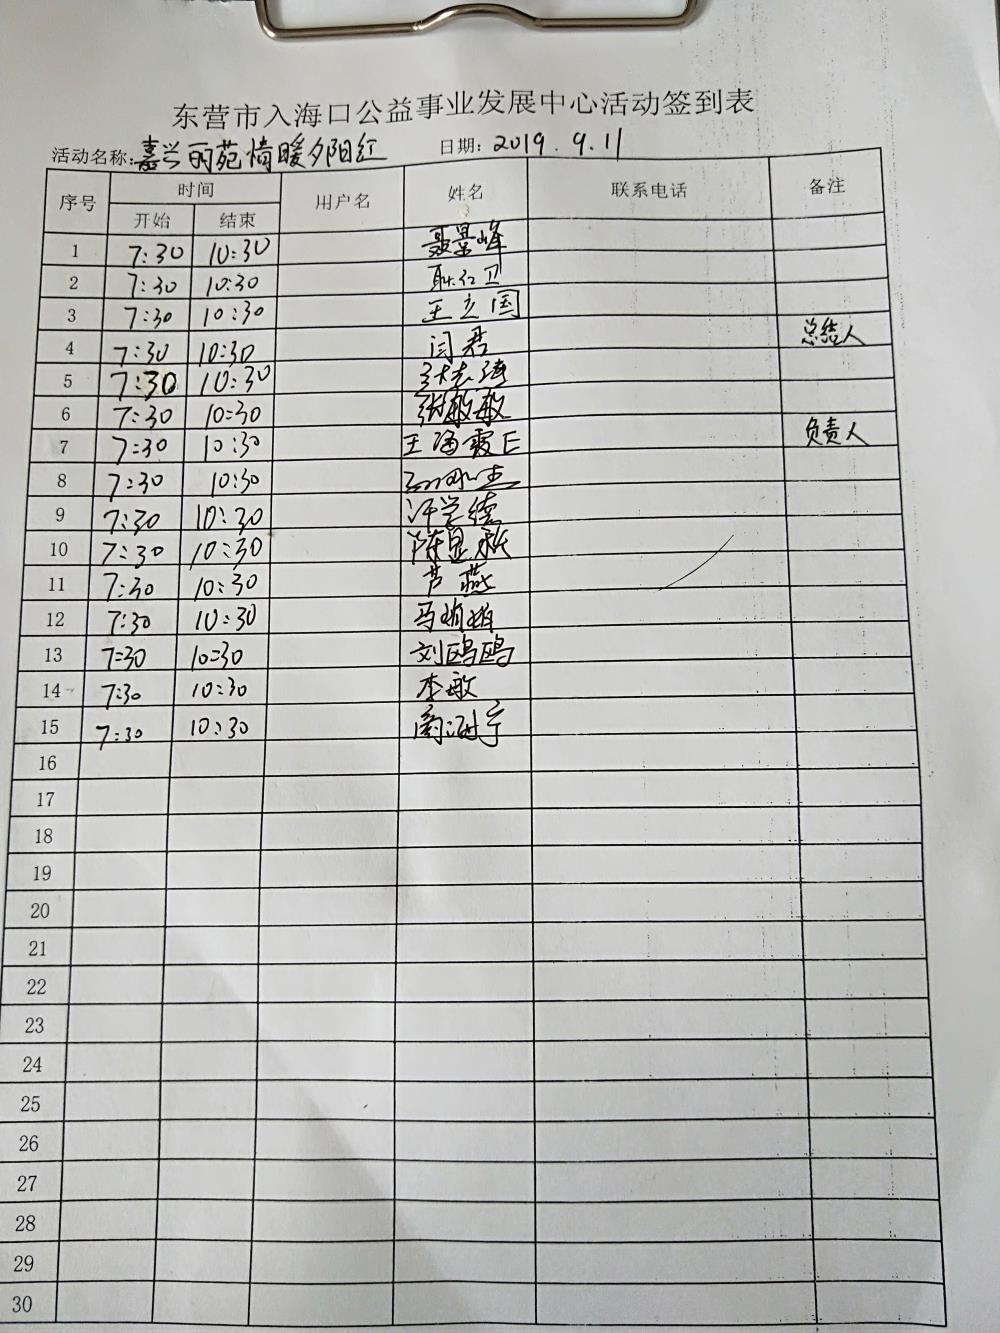 东营市入海口公益事业发展中心活动签到表
活动名称:嘉兴丽苑情暖夕阳红 日期:2019.9.11
序号 时间 用户名 姓名 联系电话 备注
开始 结束
1 7:30 10:30 聂景峰
2 7:30 10:30 耿红卫
3 7:30 10:30 王立国
4 7:30 10:30 闫君 总结人
5 7:30 10:30
6 7:30 10:30 张敏敏
7 7:30 10:30 王海霞E 负责人
8 7:30 10:30
9 7:30 10:30 许学德
10 7:30 10:30 陈显
11 7:30 10:30 芦燕
12 7:30 10:30 马娟娟
13 7:30 10:30 刘鸥鸥
14 7:30 10:30 李敏
15 7:30 10:30
16
17
18
19
20
21
22
23
24
25
26
27
28
29
30